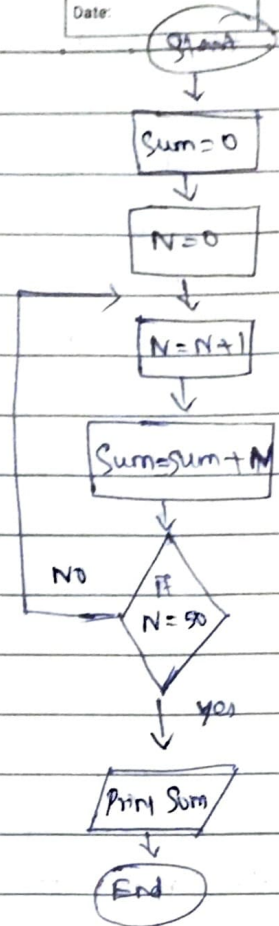 Date:
Start
Sum=0
N=0
N=N+1
Sum=Sum+N
NO
If
N=50
yes
Print Sum
End